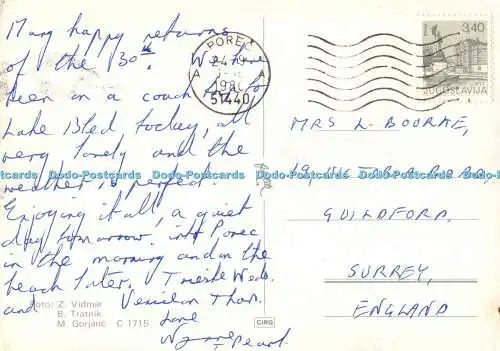 Many happy returns
of the 30th. We have
been on a coach trip to
Lake Bled today, all
very lovely and the
weather is perfect.
Enjoying it all, a quiet
day tomorrow, into Porec
in the morning and on the
beach later. Trieste Weds.
and Venice on Thur.
Love
Pearl.
Foto: Z. Vidmar
B. Tratnik
M. Gorjanc C 1715
CIRG
POREČ
A A
51440
3,40
JUGOSLAVIJA
MRS L. BOURKE,
GUILDFORD,
SURREY,
ENGLAND
Dodo-Postcards Dodo-Postcards Dodo-Postcards Dodo-Postcards Dodo-Postcards